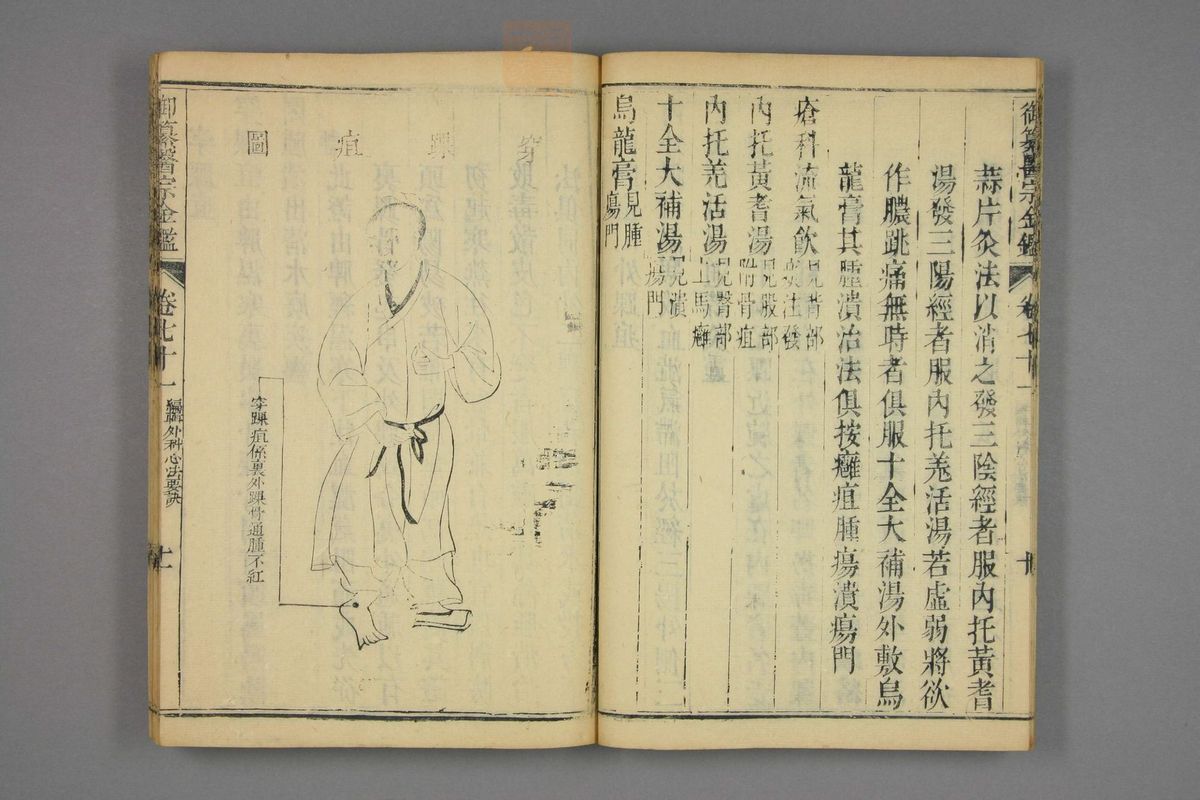 御纂醫宗金鑑
卷七十一
蒜片灸法以消之發三陰經者服內托黃耆
湯發三陽經者服內托羗活湯若虛弱將欲
作膿跳痛無時者俱服十全大補湯外敷烏
龍膏其腫潰治法俱按癰疽腫瘍潰瘍門
瘡科流氣飲見背部
內托黃耆湯見股部
附骨疽
內托羗活湯見臀部
上馬癰
十全大補湯見潰
瘍門
烏龍膏見腫
瘍門
穿踝疽圖
穿踝疽係裏外踝骨通腫不紅
御纂醫宗金鑑
卷七十一
編輯外科心法要訣